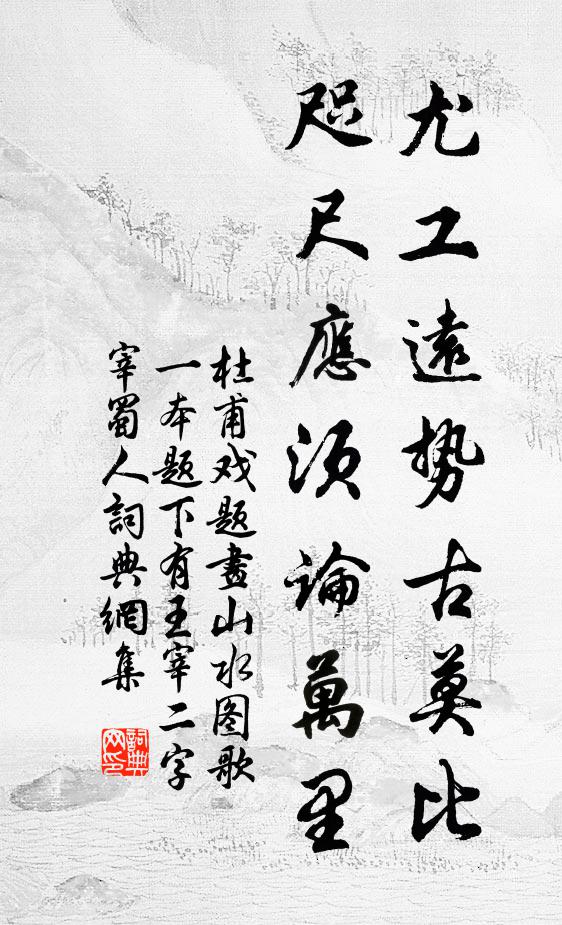 尤工遠势古莫比
咫尺應须論萬里
杜甫戏题畫山水图歌
一本题下有王宰二字
宰蜀人詞典網集
詞典
网印